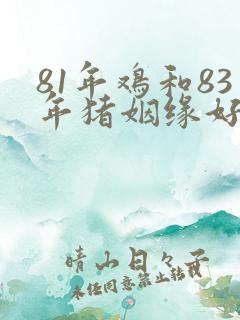 81年鸡和83
年猪姻缘好
晴山日々子
未任同意禁止转载